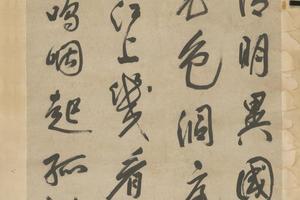 明異國
色洞庭
江上幾看
嗚咽起孤